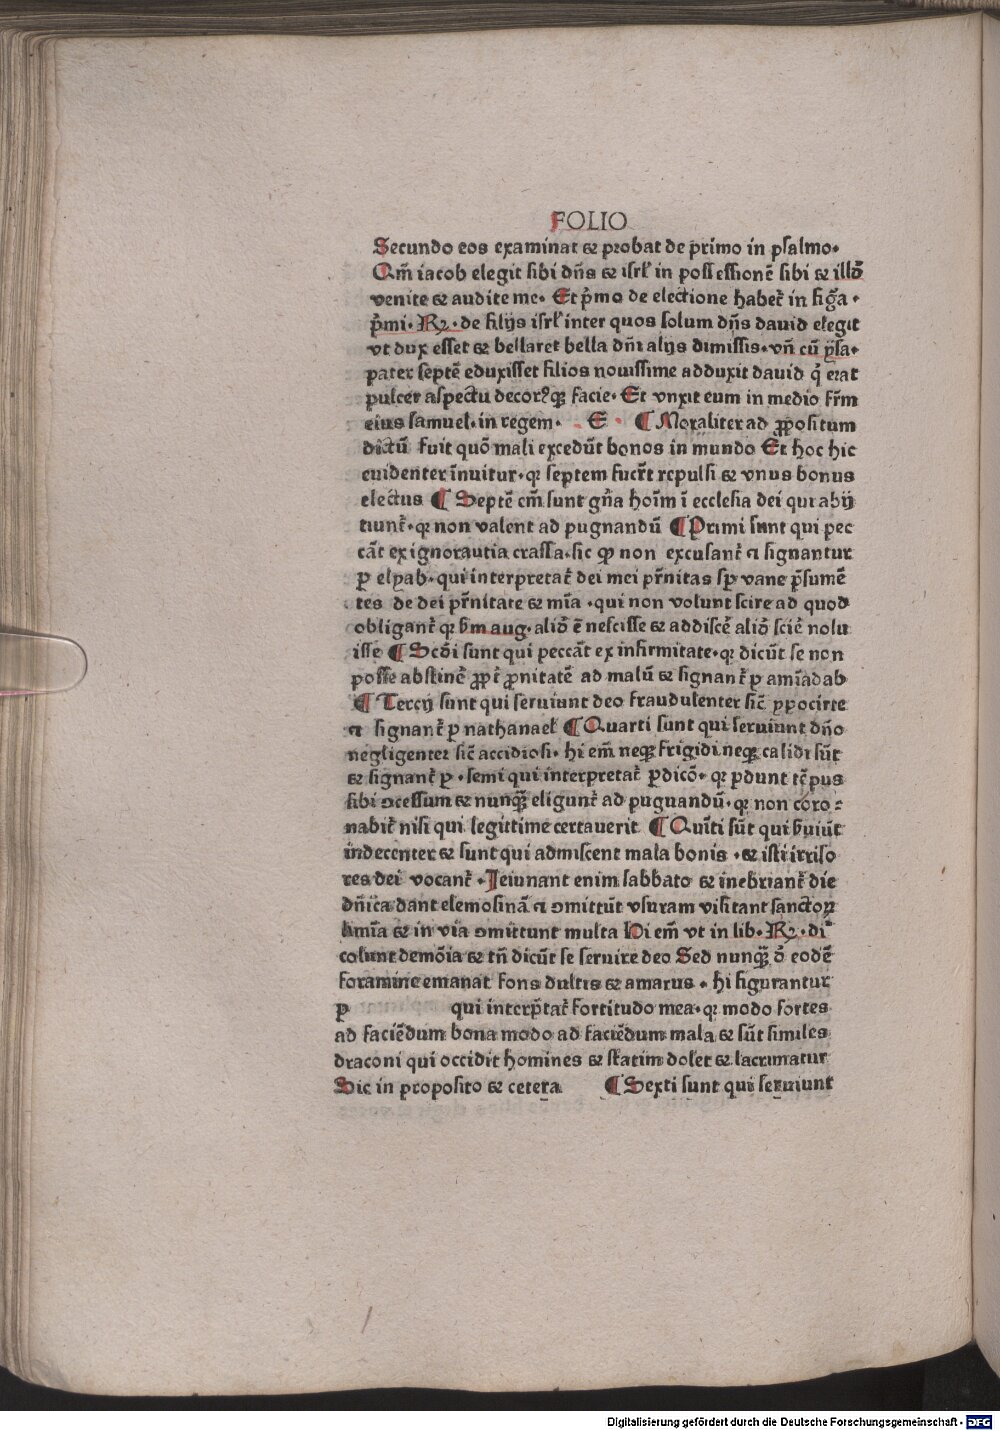 FOLIO
Secundo eos examinat ⁊ probat de primo in psalmo·
Qm̄ iacob elegit sibi dn̄s ⁊ isrl̓ in possessionē sibi ⁊ illō
venite ⁊ audite me· Et p̄mo de electione habet᷑ in figa᷑·
p̄mi· Rꝫ· de filijs isrl̓ inter quos solum dn̄s dauid elegit
vt dux esset ⁊ bellaret bella dn̄i alijs dimissis· vn̄ cū ysa·
pater septē eduxisset filios nouissime adduxit dauid q̇ erat
pulcer aspectu decorꝰqꝫ facie· Et vnxit eum in medio fr̄m
eius samuel· in regem· E · ¶ Moraliter ad ꝓpositum
dictū fuit quō mali excedūt bonos in mundo Et hoc hic
euidenter īnuitur· qꝛ septem fuer̄t repulsi ⁊ vnus bonus
electus ¶ Septē em̄ sunt gn̄a hoīm ī ecclesia dei qui abij
tiunt᷑· qꝛ non valent ad pugnandū ¶ Primi sunt qui pec
cāt ex ignorautia crassa· sic ꝙ non excusant᷑ ⁊ signantur
ꝑ elyab· qui interpretat᷑ dei mei pr̄nitas sꝑ vane p̄sumē
tes de dei pr̄nitate ⁊ mīa · qui non volunt scire ad quod
obligant᷑ qꝛ ẜm aug· aliō ē nescisse ⁊ addiscē aliō sciē nolu
isse ¶ Scd̄i sunt qui peccāt ex infirmitate· qꝛ dicūt se non
posse abstinē ꝓpt᷑ ꝓnitatē ad malū ⁊ signant᷑ ꝑ amīadab
¶ Tercij sunt qui seruiunt deo fraudulenter sic̄ ypocirte
⁊ signant᷑ ꝑ nathanael ¶ Quarti sunt qui seruiunt dn̄o
negligenter sic̄ accidiosi· hi em̄ neqꝫ frigidi neqꝫ calidi sūt
⁊ signant᷑ ꝑ · semi qui interpretat᷑ ꝑdicō· qꝛ ꝑdunt tēpus
sibi ꝯcessum ⁊ nunqꝫ̄ eligunt᷑ ad puguandū· qꝛ non coro⸗
nabit᷑ nisi qui legittime certauerit ¶ Quīti sūt qui ẜuiūt
indecenter ⁊ sunt qui admiscent mala bonis · ⁊ isti irriso
res dei vocant᷑ · Ieiunant enim sabbato ⁊ inebriant᷑ die
dn̄ica dant elemosinā ⁊ ꝯmittūt vsuram visitant sanctoꝝ
limīa ⁊ in via ꝯmittunt multa Hi em̄ vt in lib· Rꝫ· di᷑
colunt demōia ⁊ tn̄ dicūt se seruire deo Sed nunqꝫ̄ d̄ eodē
foramine emanat fons dulcis ⁊ amarus · hi figurantur
ꝑ qui interp̄tat᷑ fortitudo mea· qꝛ modo fortes
ad faciēdum bona modo ad faciēdum mala ⁊ sūt similes
draconi qui occidit homines ⁊ statim dolet ⁊ lacrimatur
Sic in proposito ⁊ cetera ¶ Sexti sunt qui seruiunt
Digitalisierung gefördert durch die Deutsche Forschungsgemeinschaft - DFG